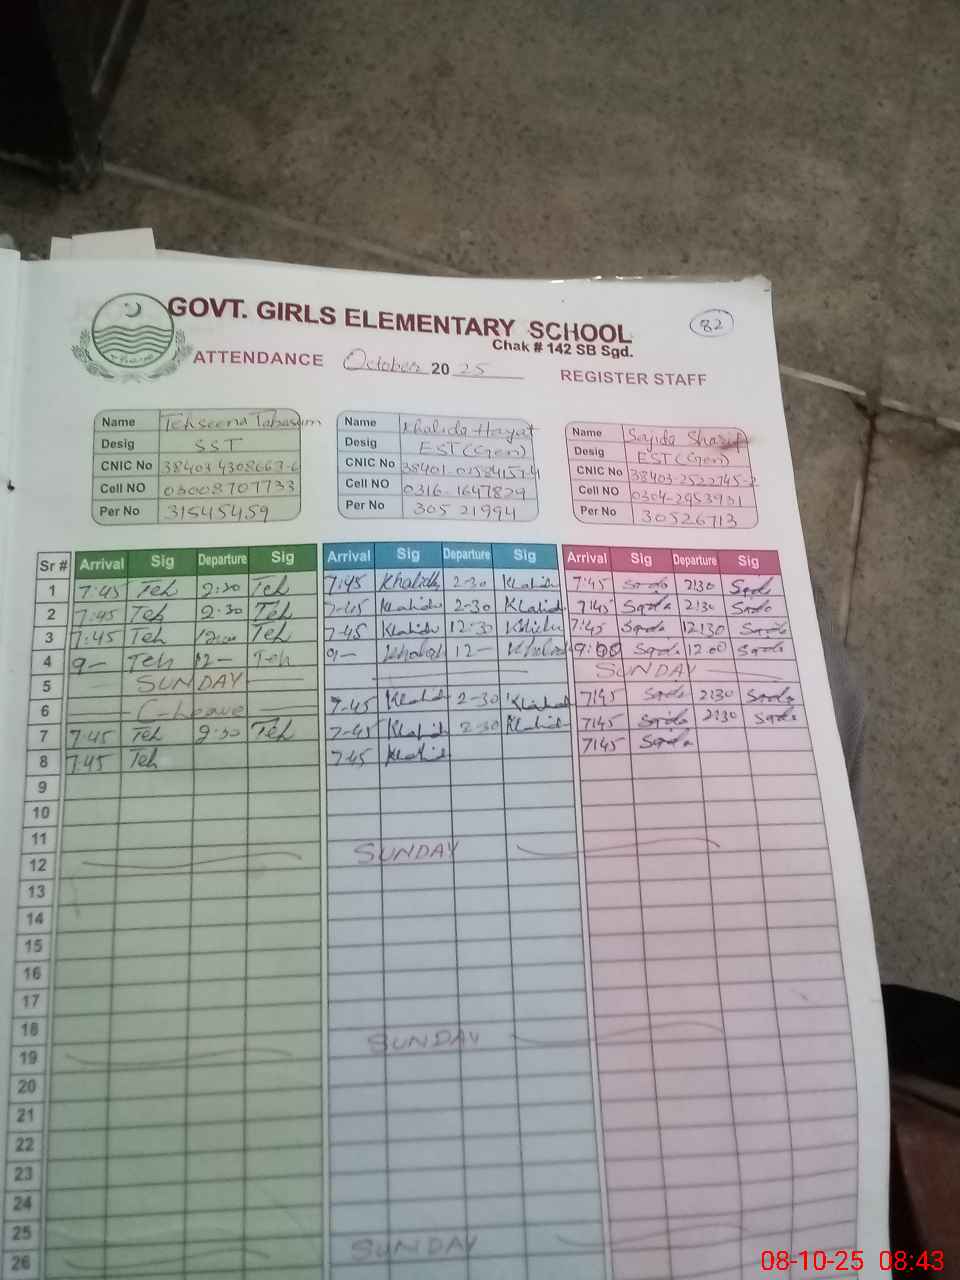 GOVT. GIRLS ELEMENTARY SCHOOL
82
Chak # 142 SB Sgd.
ATTENDANCE October 2025 REGISTER STAFF
Name Tehseena Tabasum
Desig SST
CNIC No 38403 4308663-6
Cell NO 03008707733
Per No 31545459
Name Khalida Hayat
Desig EST (Gen)
CNIC No
Cell NO 0316-1647829
Per No 305 21994
Name Sajida Sharif
Desig EST (Gen)
CNIC No
Cell NO 0304-2953931
Per No 30526713
Sr # Arrival Sig Departure Sig Arrival Sig Departure Sig Arrival Sig Departure Sig
1 7:45 Teh 2:30 Teh 7:45 Khalida 2-30 Khalida 7:45 2:30
2 7:45 Teh 2:30 Teh 7-45 Khalida 2-30 Khalida 7:45 2:30
3 7:45 Teh 12:00 Teh 7-45 Khalida 12:30 Khalida 7:45 12:30
4 9- Teh 12- Teh 9- Khalida 12- Khalida 9:00 12 00
5 SUNDAY SUNDAY
6 C-Leave 7-45 Khalida 2-30 Khalida 7:45 2:30
7 7:45 Teh 2:30 Teh 7-45 Khalida 2-30 Khalida 7:45 2:30
8 7:45 Teh 7:45 Khalida 7:45
9
10
11
12 SUNDAY
13
14
15
16
17
18
19 SUNDAY
20
21
22
23
24
25
26 SUNDAY
08-10-25 08:43